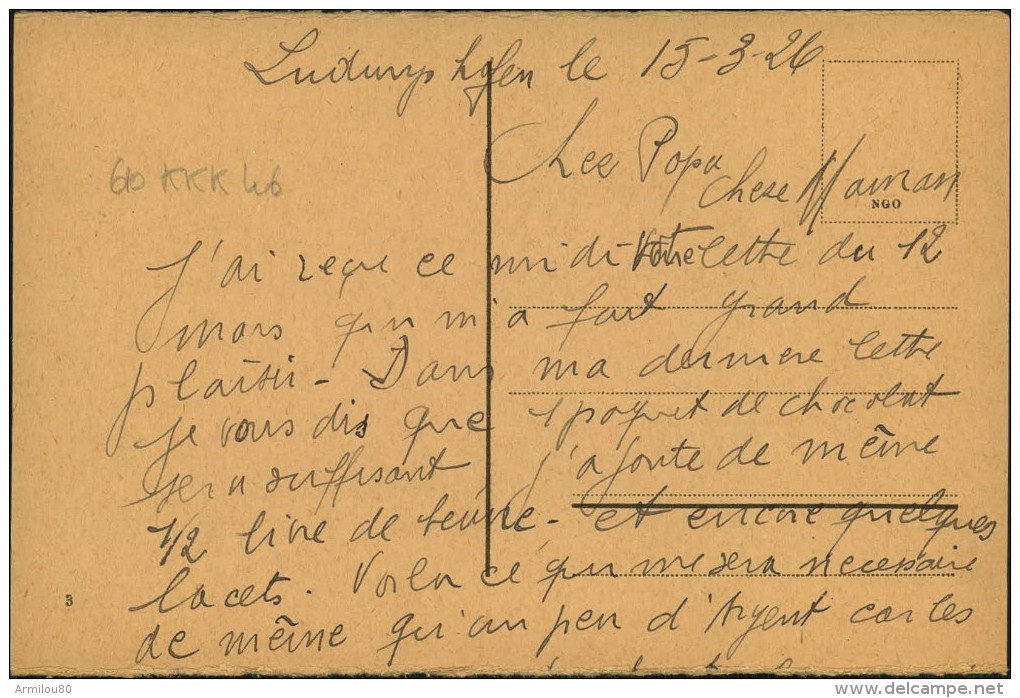 Ludwigshafen le 15-3-26
60 KKK 46
Cher Papa
Chere Maman
NGO
J'ai reçu ce midi votre lettre du 12
mars qui m'a fait grand
plaisir - Dans ma derniere lettre
je vous dis que 1 paquet de chocolat
sera suffisant, j'ajoute de même
1/2 livre de beurre - et encore quelques
lacets. Voila ce qui me sera necessaire
3
de même qu'un peu d'Argent car les
Armilou80
delcampe.net